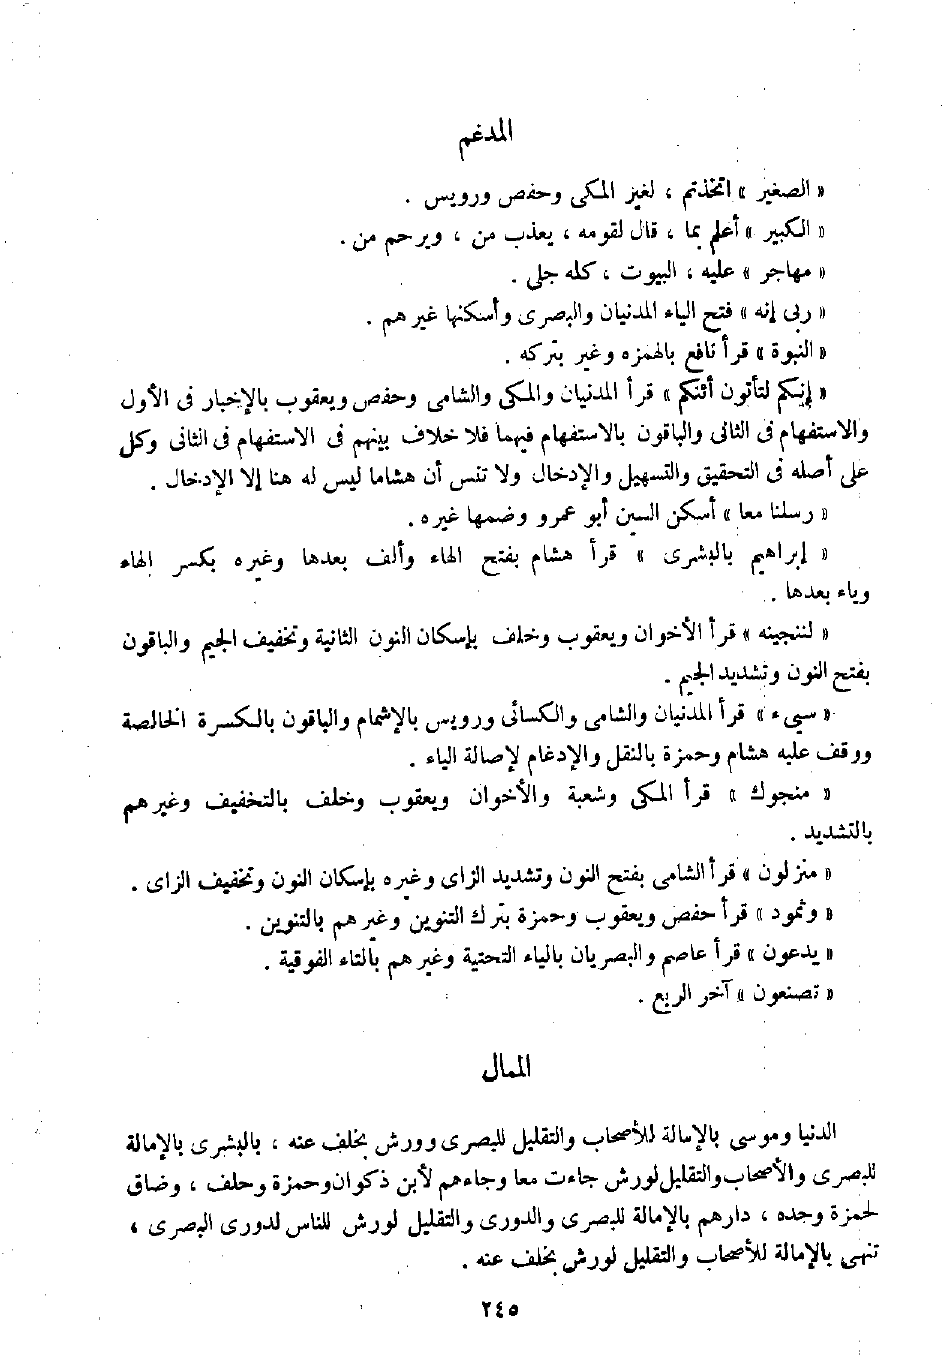 المدغم
« الصغير » اتخذتم ، لغير المكى وحفص ورويس .
« الكبير » أعلم بما ، قال لقومه ، يعذب من ، ويرحم من .
« مهاجر » عليه ، البيوت ، كله جلى .
« ربى إنه » فتح الياء المدنيان والبصرى وأسكنها غيرهم .
« النبوة » قرأ نافع بالهمزه وغير بتركه .
« إنكم لتأتون أئنكم » قرأ المدنيان والمكى والشامى وحفص ويعقوب بالإخبار فى الأول
والاستفهام فى الثانى والباقون بالاستفهام فيهما فلا خلاف بينهم فى الاستفهام فى الثانى وكل
على أصله فى التحقيق والتسهيل والإدخال ولا تنس أن هشاما ليس له هنا إلا الإدخال .
« رسلنا معا » أسكن السين أبو عمرو وضمها غيره .
« إبراهيم بالبشرى » قرأ هشام بفتح الهاء وألف بعدها وغيره بكسر الهاء
وياء بعدها .
« لننجينه » قرأ الأخوان ويعقوب وخلف بإسكان النون الثانية وتخفيف الجيم والباقون
بفتح النون وتشديد الجيم .
« سىء » قرأ المدنيان والشامى والكسائى ورويس بالإشمام والباقون بالكسرة الخالصة
ووقف عليه هشام وحمزة بالنقل والإدغام لإصالة الياء .
« منجوك » قرأ المكى وشعبة والأخوان ويعقوب وخلف بالتخفيف وغيرهم
بالتشديد .
« منزلون » قرأ الشامى بفتح النون وتشديد الزاى وغيره بإسكان النون وتخفيف الزاى .
« وثمود » قرأ حفص ويعقوب وحمزة بترك التنوين وغيرهم بالتنوين .
« يدعون » قرأ عاصم والبصريان بالياء التحتية وغيرهم بالتاء الفوقية .
« تصنعون » آخر الربع .
الممال
الدنيا وموسى بالإمالة للأصحاب والتقليل للبصرى وورش بخلف عنه ، بالبشرى بالإمالة
للبصرى والأصحاب والتقليل لورش جاءت معا وجاءهم لأبن ذكوان وحمزة وخلف ، وضاق
لحمزة وحده ، دارهم بالإمالة للبصرى والدورى والتقليل لورش للناس لدورى البصرى ،
تنهى بالإمالة للأصحاب والتقليل لورش بخلف عنه .
٢٤٥